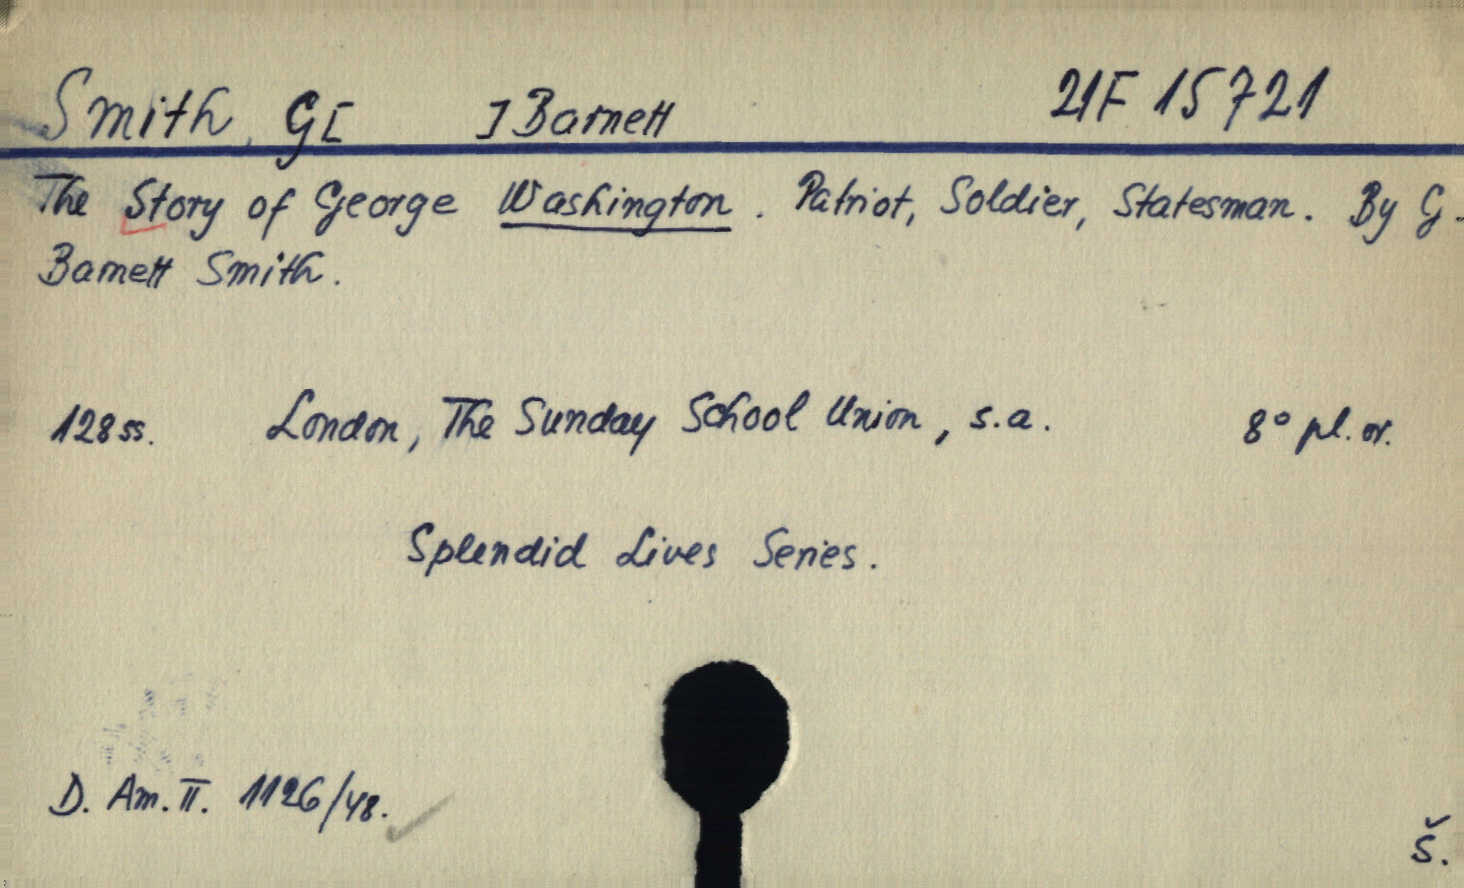 Smith, G[ ] Barnett 21F 15721
The Story of George Washington. Patriot, Soldier, Statesman. By G.
Barnett Smith.
128 ss. London, The Sunday School Union, s.a. 8° pl. or.
Splendid Lives Series.
D. Am. II. 1126/48.
Š.